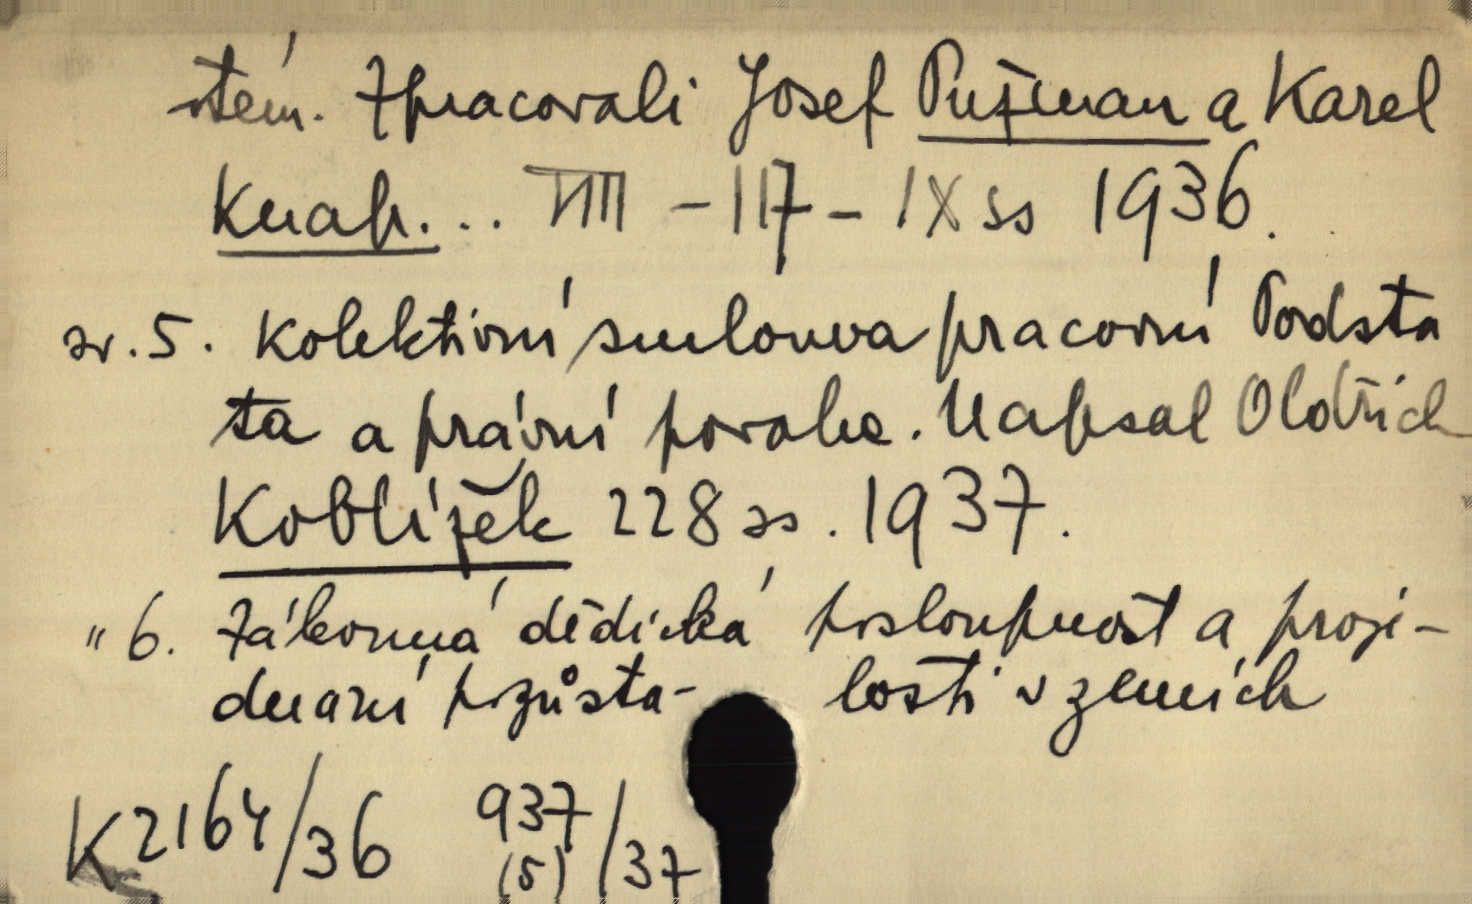 stém. Zpracovali Josef Pužman a Karel
Knap... VIII - 117 - IX ss 1936.
sv. 5. Kolektivní smlouva pracovní Podsta
ta a právní povaha. Napsal Oldřich
Koblížek 228 ss. 1937.
" 6. Zákonná dědická posloupnost a proji-
dnání pozůsta- losti v zemích
K 2164/36 937(5)/37